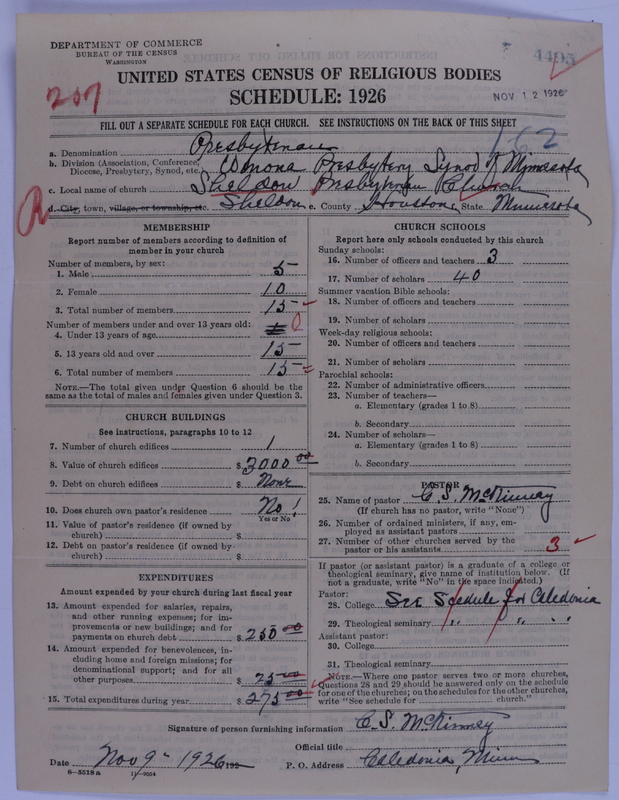 DEPARTMENT OF COMMERCE
BUREAU OF THE CENSUS
WASHINGTON
4495
UNITED STATES CENSUS OF RELIGIOUS BODIES
207
SCHEDULE: 1926
NOV 12 1926
FILL OUT A SEPARATE SCHEDULE FOR EACH CHURCH. SEE INSTRUCTIONS ON THE BACK OF THIS SHEET
162
a. Denomination Presbyterian
b. Division (Association, Conference, Diocese, Presbytery, Synod, etc. Winona Presbytery Synod of Minnesota
c. Local name of church Sheldon Presbyterian Church
d. City, town, village, or township, etc. Sheldon e. County Houston State Minnesota
MEMBERSHIP
Report number of members according to definition of
member in your church
Number of members, by sex:
1. Male 5
2. Female 10
3. Total number of members 15
Number of members under and over 13 years old:
4. Under 13 years of age 0
5. 13 years old and over 15
6. Total number of members 15
NOTE.—The total given under Question 6 should be
same as the total of males and females given under Question 3.
CHURCH BUILDINGS
See instructions, paragraphs 10 to 12
7. Number of church edifices 1
8. Value of church edifices $3000 00
9. Debt on church edifices $ None
10. Does church own pastor's residence No!
Yes or No
11. Value of pastor's residence (if owned by
church) $
12. Debt on pastor's residence (if owned by
church) $
EXPENDITURES
Amount expended by your church during last fiscal year
13. Amount expended for salaries, repairs,
and other running expenses; for im-
provements or new buildings; and for
payments on church debt $250 00
14. Amount expended for benevolences, in-
cluding home and foreign missions; for
denominational support; and for all
other purposes 25 00
15. Total expenditures during year $275 00
CHURCH SCHOOLS
Report here only schools conducted by this church
Sunday schools:
16. Number of officers and teachers 3
17. Number of scholars 40
Summer vacation Bible schools:
18. Number of officers and teachers
19. Number of scholars
Week-day religious schools:
20. Number of officers and teachers
21. Number of scholars
Parochial schools:
22. Number of administrative officers
23. Number of teachers—
a. Elementary (grades 1 to 8)
b. Secondary
24. Number of scholars—
a. Elementary (grades 1 to 8)
b. Secondary
PASTOR
25. Name of pastor C. S. McKinney
(If church has no pastor, write "None")
26. Number of ordained ministers, if any, em-
ployed as assistant pastors
27. Number of other churches served by the
pastor or his assistants 3
If pastor (or assistant pastor) is a graduate of a college or
theological seminary, give name of institution below. (If
not a graduate, write "No" in the space indicated.)
Pastor:
28. College See Scedule for Caledonia
29. Theological seminary " " " "
Assistant pastor:
30. College
31. Theological seminary
NOTE.—Where one pastor serves two or more churches,
Questions 28 and 29 should be answered only on the schedule
for one of the churches; on the schedules for the other churches,
write "See schedule for church."
Signature of person furnishing information C. S. McKinney
Official title
Date Nov 9 - 1926 192 P. O. Address Caledonia, Minn
8—5518 a 11—9054